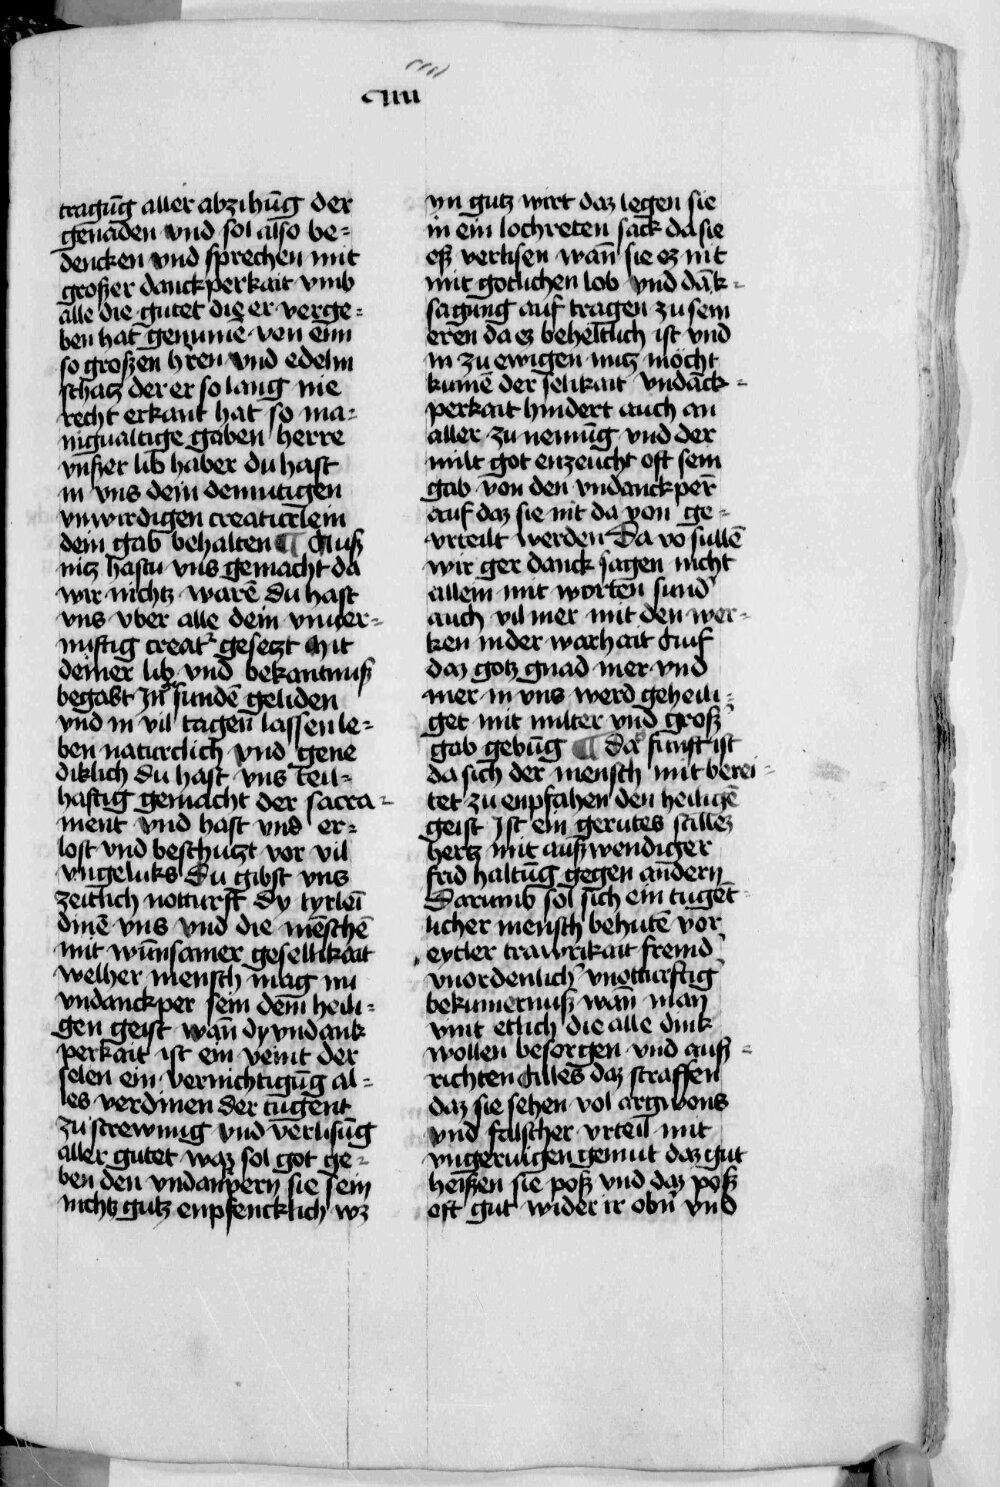 ciiii
tragu̅g aller abzihu̅g der
genaden vnd sol also be=
dencken vnd sprechen mit
großer danckperkait vmb
alle die gutet die er verge=
ben hat genume̅ ven eim
so großen h̅ren vnd edelm
schatz der er so lang nie
recht erkant hat so ma=
nigualtige gaben herre
vnßer lib haber du hast
in vns dein demutigen
vnwirdigen creaturlein
dein gab behalten ¶ Auß
nitz hastu vns gemacht da
wir nichtz ware̅ Du hast
vns vber alle dein vnuer=
nuftig creatᷣ gesetzt Mit
deiner lib vnd bekantnuß
begabt In sunde̅ geliden
vnd in vil tagen lassen le=
ben naturclich vnd gene
diklich Du hast vns teil=
haftig gemacht der sacra=
ment vnd hast vns er=
lost vnd beschutzt vor vil
vngeluks Du gibst vns
zeitlich notturft Dy tyrlei̅
dine̅ vns vnd die me̅sche̅
mit wu̅nsamer gesellikait
welher mensch mag nu
vndanckper sein dem heili=
gen geist wa̅n dy vndank
perkait ist ein veint der
selen ein vernichtigu̅g al=
les verdinen der tugent
zu strewung vnd verlisu̅g
aller gutet waz sol got ge=
ben den vndankpern sie sein
nichtz gutz enpfencklich wz
yn gutz wirt daz legen sie
in ein lochreten sack da sie
eß verlisen wan̅ sie ez nit
mit gotlichen lob vnd da̅k=
sagung auf tragen zu sein
eren da ez beheltlich ist vnd
in zu ewigen nutz mocht
kume̅ der selikait vndack=
perkait hindert auch an
aller zu nemu̅g vnd der
milt got enzeucht oft sein
gab von den vndanckper̅
auf daz sie nit da von ge=
vrteilt werden Da vo̅ sulle̅
wir ger danck sagen nicht
allein mit worten sund̓
auch vil mer mit den wer=
ken in der warhait Auf
daz gotz gnad mer vnd
mer in vns werd geheili=
get mit milter vnd groß̓
gab gebu̅g ¶ Daz funft ist
da sich der mensch mit berei=
tet zu enpfahen den heilige̅
geist Ist ein gerutes stillez
hertz mit außwendiger
frid haltu̅g gegen andern
Darumb sol sich ein tuge̅t=
licher mensch behute̅ vor
eytler trawrikait fremd̓
vnordenlich̓ vnotturftig̓
bekumernuß wan man
vint etlich die alle dink
wollen besorgen vnd auß=
richten Alles daz straffen
daz sie sehen vol argwons
vnd falscher vrteil mit
vngeruigen gemut daz gut
heißen sie poß vnd daz poß
oft gut wider ir obn̅ vnd